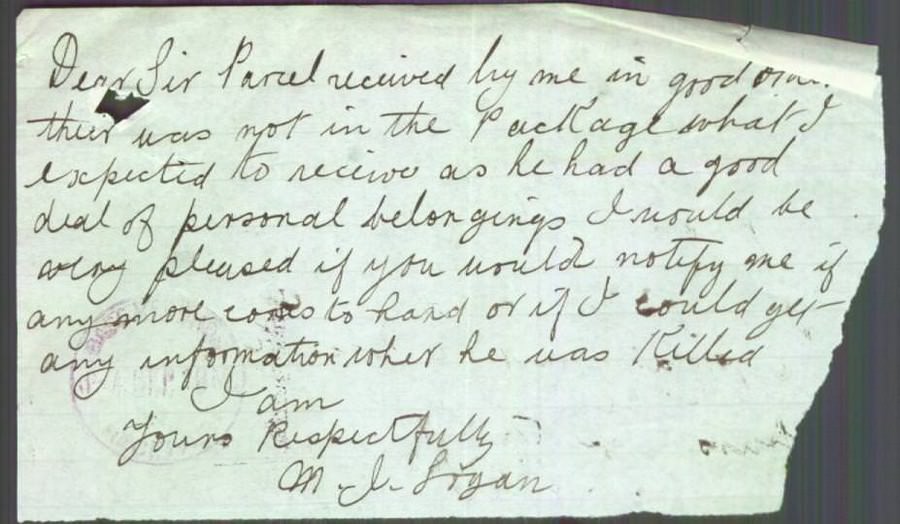 Dear Sir Parcel received by me in good
ther was not in the Package what I
expected to receive as he had a good
deal of personal belongings I would be
very pleased if you would notify me if
any more comes to hand or if I could get
any information wher he was Killed
I am
Yours Respectfully
M. J. Logan